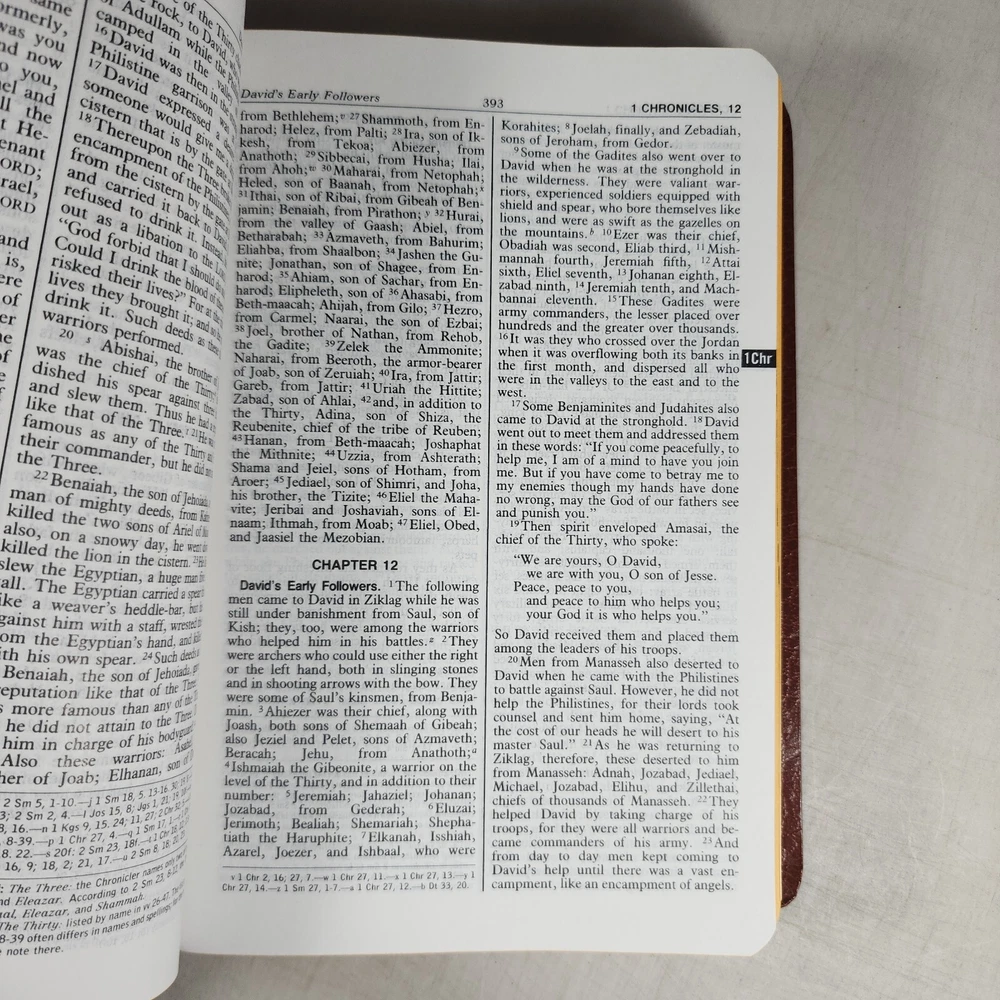 same
ormerly,
was you
nd now
o you,
el and
ll the
t He-
enant
ORD;
rael,
ORD
and
is,
ere
of
er
ne
of
e of the Thirty
rock, to David,
of Adullam while the
camped in the valley
16 David was then in the
Philistine garrison was
17 David expressed a
someone would give me
cistern that is by the gate
18 Thereupon the Three
encampment of the Philistines
from the cistern by the gate
and carried it back to David
refused to drink it. Instead
out as a libation to the
"God forbid that I should
Could I drink the blood of
risked their lives?" For at
lives they brought it; and so
drink it. Such deeds as these
warriors performed.
20 s Abishai, the brother of
was the chief of the Thirty
dished his spear against three
and slew them. Thus he had a
like that of the Three. t 21 He
famous as any of the Thirty and
their commander, but he did not
the Three.
22 Benaiah, the son of Jehoiada,
man of mighty deeds, from
killed the two sons of Ariel of
also, on a snowy day, he went
killed the lion in the cistern. 23
slew the Egyptian, a huge man
all. The Egyptian carried a spear
ike a weaver's heddle-bar, but
against him with a staff, wrested
om the Egyptian's hand, and
ith his own spear. 24 Such deeds
Benaiah, the son of Jehoiada,
reputation like that of the Three
s more famous than any of the
he did not attain to the Three.
him in charge of his bodyguard.
Also these warriors: Asahel
her of Joab; Elhanan, son of
2 Sm 5, 1-10.—j 1 Sm 18, 5. 13-16. 30;
3; 2 Sm 2, 4.—l Jos 15, 8; Jgs 1, 21; 19,
8, 16.—n 1 Kgs 9, 15. 24; 11, 27; 2 Chr
8-39.—p 1 Chr 27, 4.—q 1 Sm 17, 1.—r
8. 22.—s 20f: 2 Sm 23, 18f.—t 1 Chr
16, 9; 18, 2; 21, 17.—u 2 Sm 8, 18;
: The Three: the Chronicler names only
nd Eleazar. According to 2 Sm 23, 8-12
al, Eleazar, and Shammah.
The Thirty: listed by name in vv 26-47. The
8-39 often differs in names and spellings,
e note there.
David's Early Followers
393
1 CHRONICLES, 12
from Bethlehem; v 27 Shammoth, from En-
harod; Helez, from Palti; 28 Ira, son of Ik-
kesh, from Tekoa; Abiezer, from
Anathoth; 29 Sibbecai, from Husha; Ilai,
from Ahoh; w 30 Maharai, from Netophah;
Heled, son of Baanah, from Netophah; x
31 Ithai, son of Ribai, from Gibeah of Ben-
jamin; Benaiah, from Pirathon; y 32 Hurai,
from the valley of Gaash; Abiel, from
Betharabah; 33 Azmaveth, from Bahurim;
Eliahba, from Shaalbon; 34 Jashen the Gu-
nite; Jonathan, son of Shagee, from En-
harod; 35 Ahiam, son of Sachar, from En-
harod; Elipheleth, son of 36 Ahasabi, from
Beth-maacah; Ahijah, from Gilo; 37 Hezro,
from Carmel; Naarai, the son of Ezbai;
38 Joel, brother of Nathan, from Rehob,
the Gadite; 39 Zelek the Ammonite;
Naharai, from Beeroth, the armor-bearer
of Joab, son of Zeruiah; 40 Ira, from Jattir;
Gareb, from Jattir; 41 Uriah the Hittite;
Zabad, son of Ahlai, 42 and, in addition to
the Thirty, Adina, son of Shiza, the
Reubenite, chief of the tribe of Reuben;
43 Hanan, from Beth-maacah; Joshaphat
the Mithnite; 44 Uzzia, from Ashterath;
Shama and Jeiel, sons of Hotham, from
Aroer; 45 Jediael, son of Shimri, and Joha,
his brother, the Tizite; 46 Eliel the Maha-
vite; Jeribai and Joshaviah, sons of El-
naam; Ithmah, from Moab; 47 Eliel, Obed,
and Jaasiel the Mezobian.
CHAPTER 12
David's Early Followers. 1 The following
men came to David in Ziklag while he was
still under banishment from Saul, son of
Kish; they, too, were among the warriors
who helped him in his battles. z 2 They
were archers who could use either the right
or the left hand, both in slinging stones
and in shooting arrows with the bow. They
were some of Saul's kinsmen, from Benja-
min. 3 Ahiezer was their chief, along with
Joash, both sons of Shemaah of Gibeah;
also Jeziel and Pelet, sons of Azmaveth;
Beracah; Jehu, from Anathoth; a
4 Ishmaiah the Gibeonite, a warrior on the
level of the Thirty, and in addition to their
number: 5 Jeremiah; Jahaziel; Johanan;
Jozabad, from Gederah; 6 Eluzai;
Jerimoth; Bealiah; Shemariah; Shepha-
tiath the Haruphite; 7 Elkanah, Isshiah,
Azarel, Joezer, and Ishbaal, who were
v 1 Chr 2, 16; 27, 7.—w 1 Chr 27, 11.—x 1 Chr 27, 13.—y 1
Chr 27, 14.—z 1 Sm 27, 1-7.—a 1 Chr 27, 12.—b Dt 33, 20.
Korahites; 8 Joelah, finally, and Zebadiah,
sons of Jeroham, from Gedor.
9 Some of the Gadites also went over to
David when he was at the stronghold in
the wilderness. They were valiant war-
riors, experienced soldiers equipped with
shield and spear, who bore themselves like
lions, and were as swift as the gazelles on
the mountains. b 10 Ezer was their chief,
Obadiah was second, Eliab third, 11 Mish-
mannah fourth, Jeremiah fifth, 12 Attai
sixth, Eliel seventh, 13 Johanan eighth, El-
zabad ninth, 14 Jeremiah tenth, and Mach-
bannai eleventh. 15 These Gadites were
army commanders, the lesser placed over
hundreds and the greater over thousands.
16 It was they who crossed over the Jordan
when it was overflowing both its banks in
the first month, and dispersed all who
were in the valleys to the east and to the
west.
17 Some Benjaminites and Judahites also
came to David at the stronghold. 18 David
went out to meet them and addressed them
in these words: "If you come peacefully, to
help me, I am of a mind to have you join
me. But if you have come to betray me to
my enemies though my hands have done
no wrong, may the God of our fathers see
and punish you."
19 Then spirit enveloped Amasai, the
chief of the Thirty, who spoke:
"We are yours, O David,
we are with you, O son of Jesse.
Peace, peace to you,
and peace to him who helps you;
your God it is who helps you."
So David received them and placed them
among the leaders of his troops.
20 Men from Manasseh also deserted to
David when he came with the Philistines
to battle against Saul. However, he did not
help the Philistines, for their lords took
counsel and sent him home, saying, "At
the cost of our heads he will desert to his
master Saul." 21 As he was returning to
Ziklag, therefore, these deserted to him
from Manasseh: Adnah, Jozabad, Jediael,
Michael, Jozabad, Elihu, and Zillethai,
chiefs of thousands of Manasseh. 22 They
helped David by taking charge of his
troops, for they were all warriors and be-
came commanders of his army. 23 And
from day to day men kept coming to
David's help until there was a vast en-
campment, like an encampment of angels.
1Chr